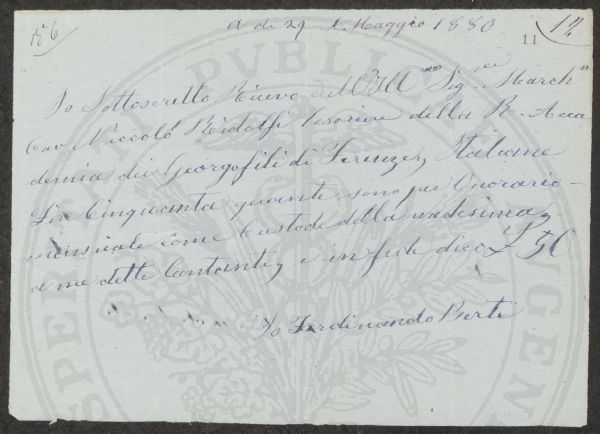 156
A dì 29 di Maggio 1880
11 12
Io Sottoscritto Ricevo dell Ill.mo Sig.re March.
Cav. Niccolò Ridolfi Tesoriere della R. Acca
demia dei Georgofili di Firenze, Italiane
Lire Cinquanta quante sono per Onorario
mensuale come Custode della medesima,
a me dette Contanti, e in fede dico £ 50
Io Ferdinando Berti